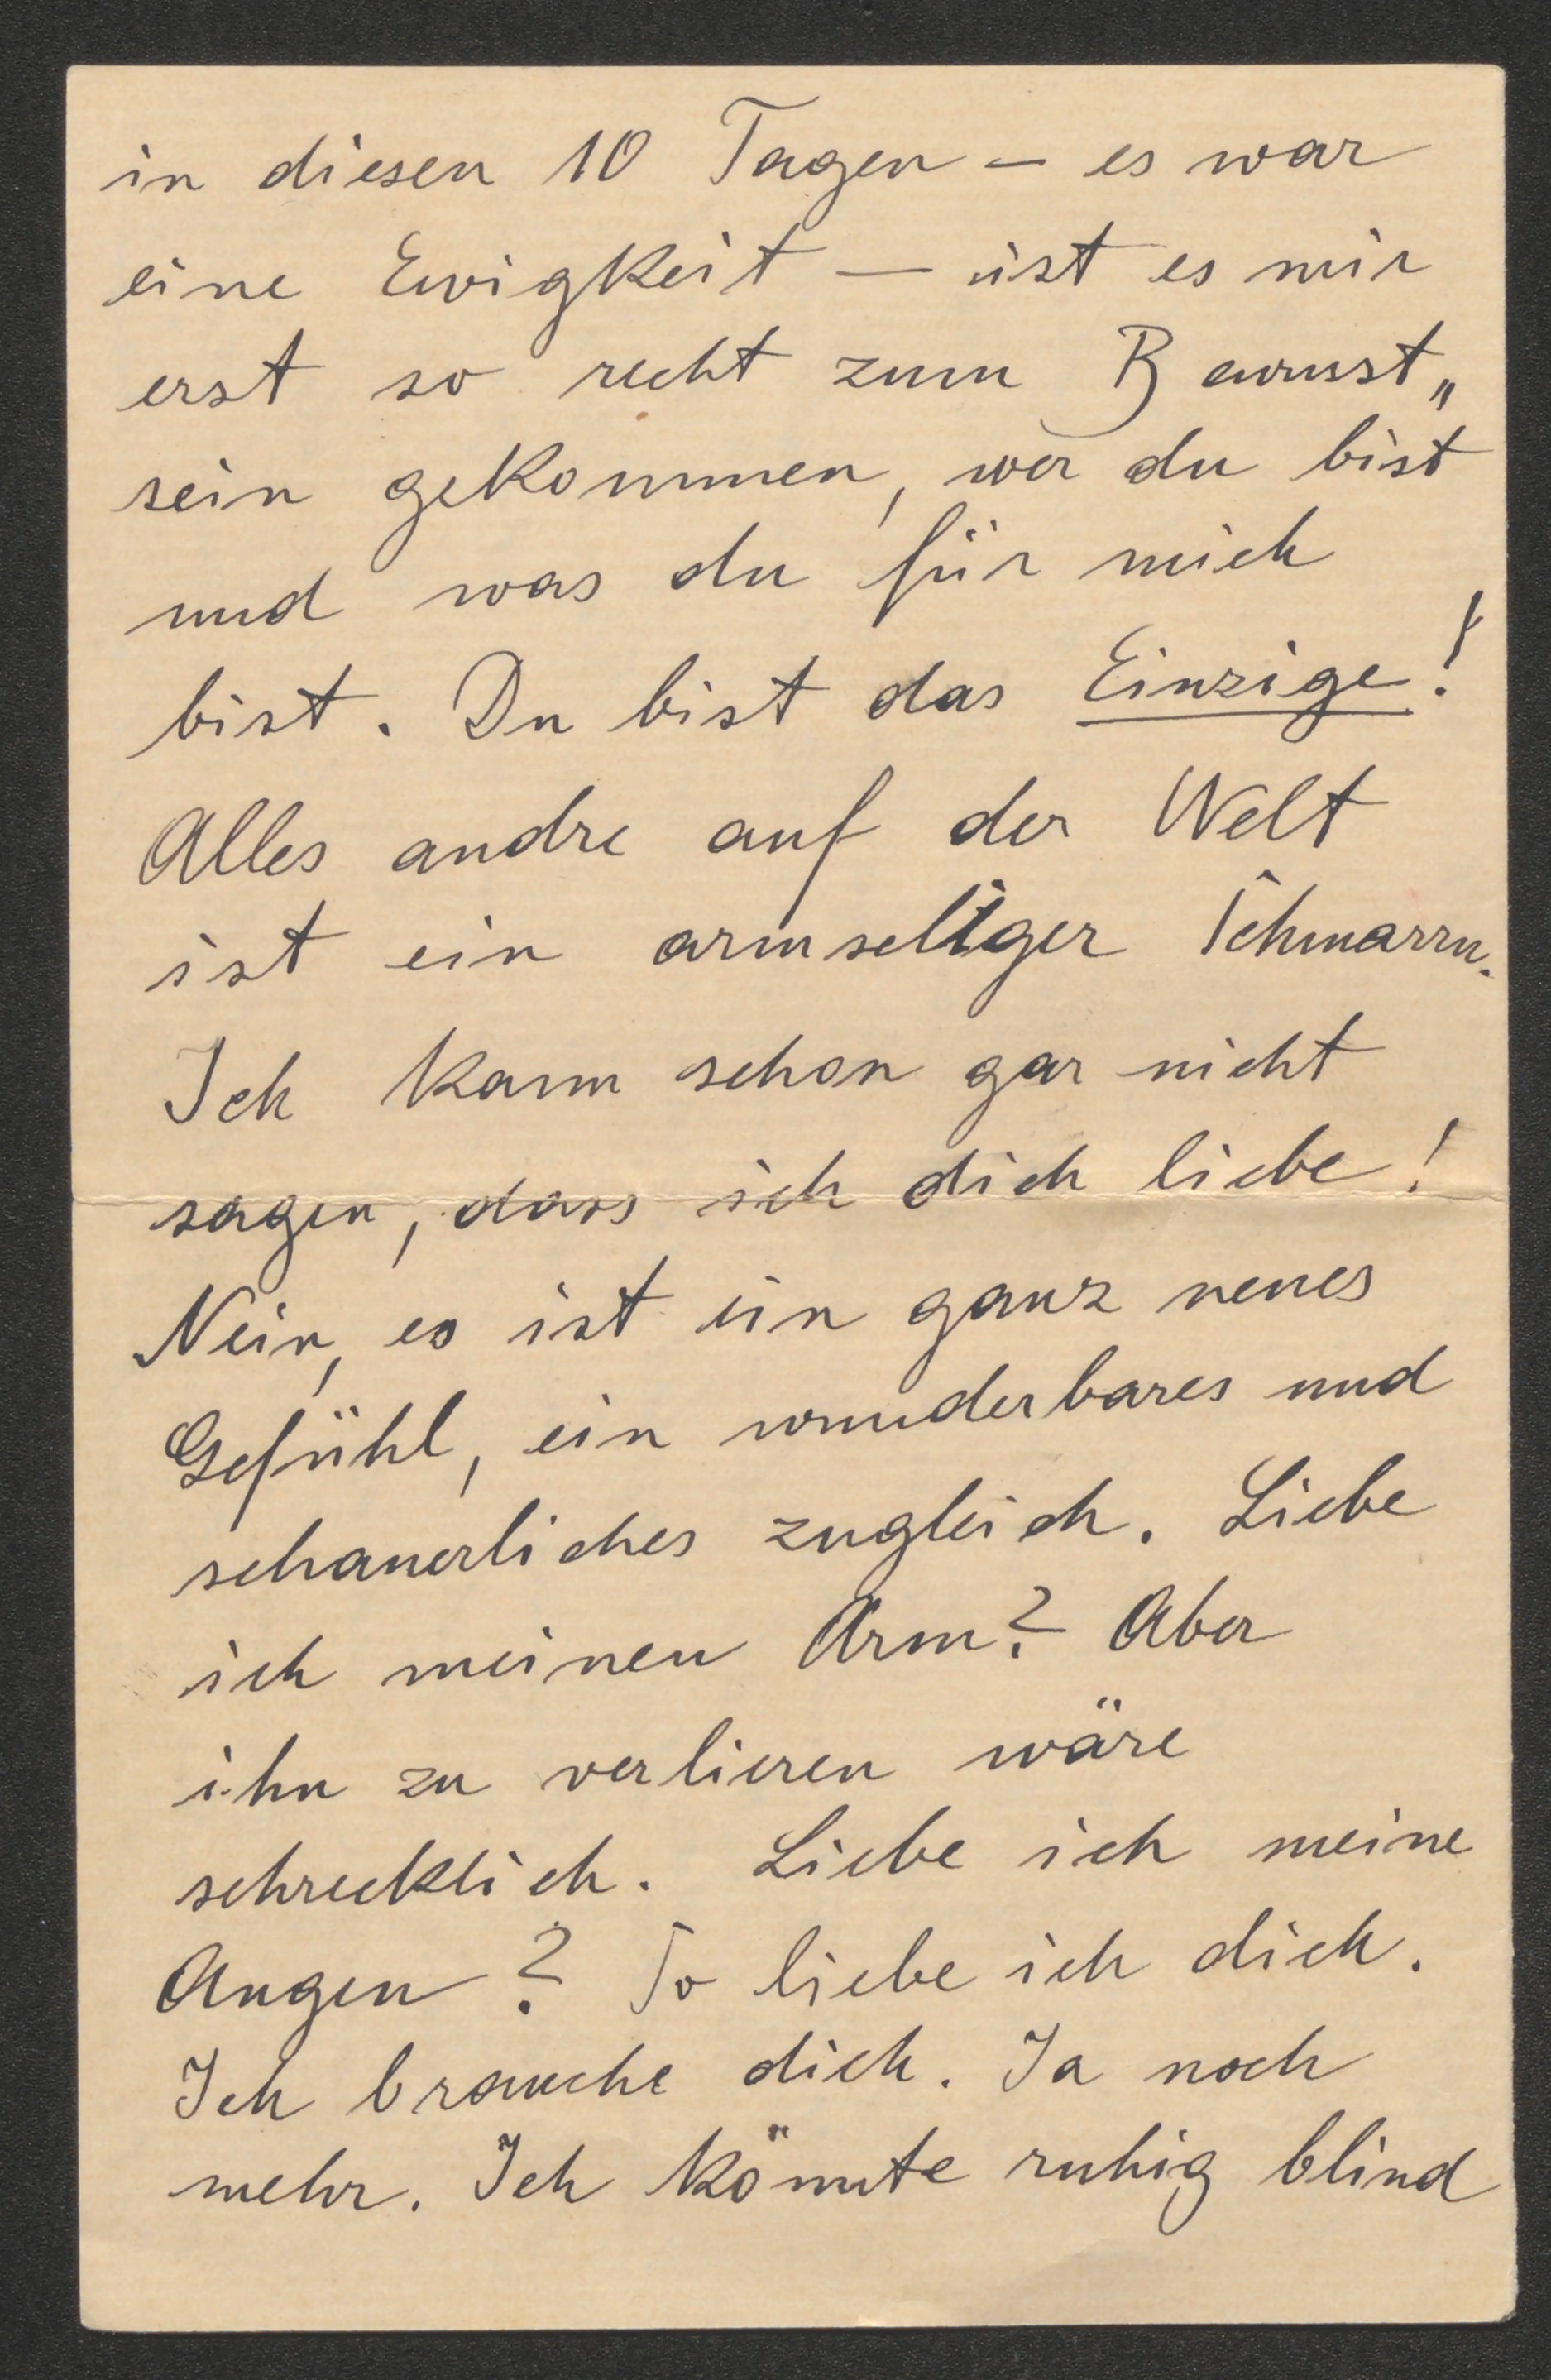 in diesen 10 Tagen — es war
eine Ewigkeit — ist es mir
erst so recht zum Bewusst„
sein gekommen, wer du bist
und was du für mich
bist. Du bist das Einzige!
Alles andre auf der Welt
ist ein armseliger Schmarrn.
Ich kann schon gar nicht
sagen, dass ich dich liebe!
Nein, es ist ein ganz neues
Gefühl, ein wunderbares und
schauerliches zugleich. Liebe
ich meinen Arm? Aber
ihn zu verlieren wäre
schrecklich. Liebe ich meine
Augen? So liebe ich dich.
Ich brauche dich. Ja noch
mehr. Ich könnte ruhig blind